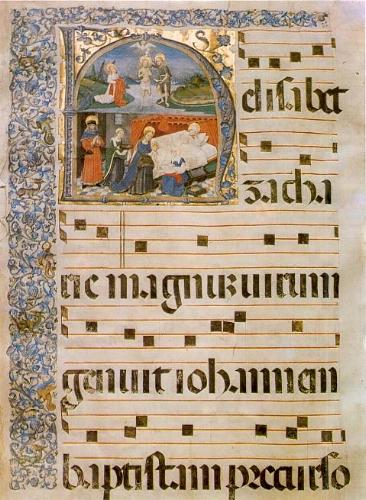 Helisabet
zacha
rie magnuz uirum
genuit iohannem
baptistam precurso